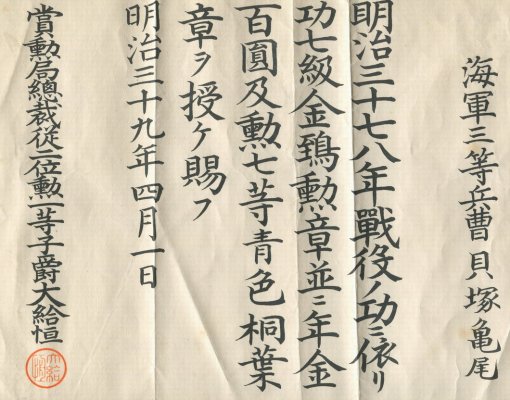 海軍三等兵曹貝塚亀尾
明治三十七八年戰役ノ功ニ依リ
功七級金鵄勲章並ニ年金
百圓及勲七等青色桐葉
章ヲ授ケ賜フ
明治三十九年四月一日
賞勲局總裁従二位勲一等子爵大給恒